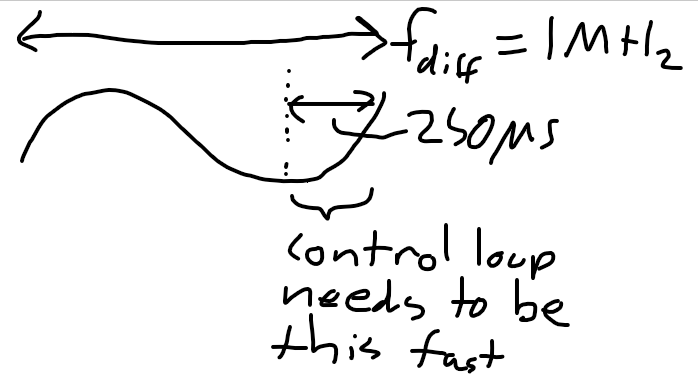 fdiff = 1MHz
250μs
control loop
needs to be
this fast